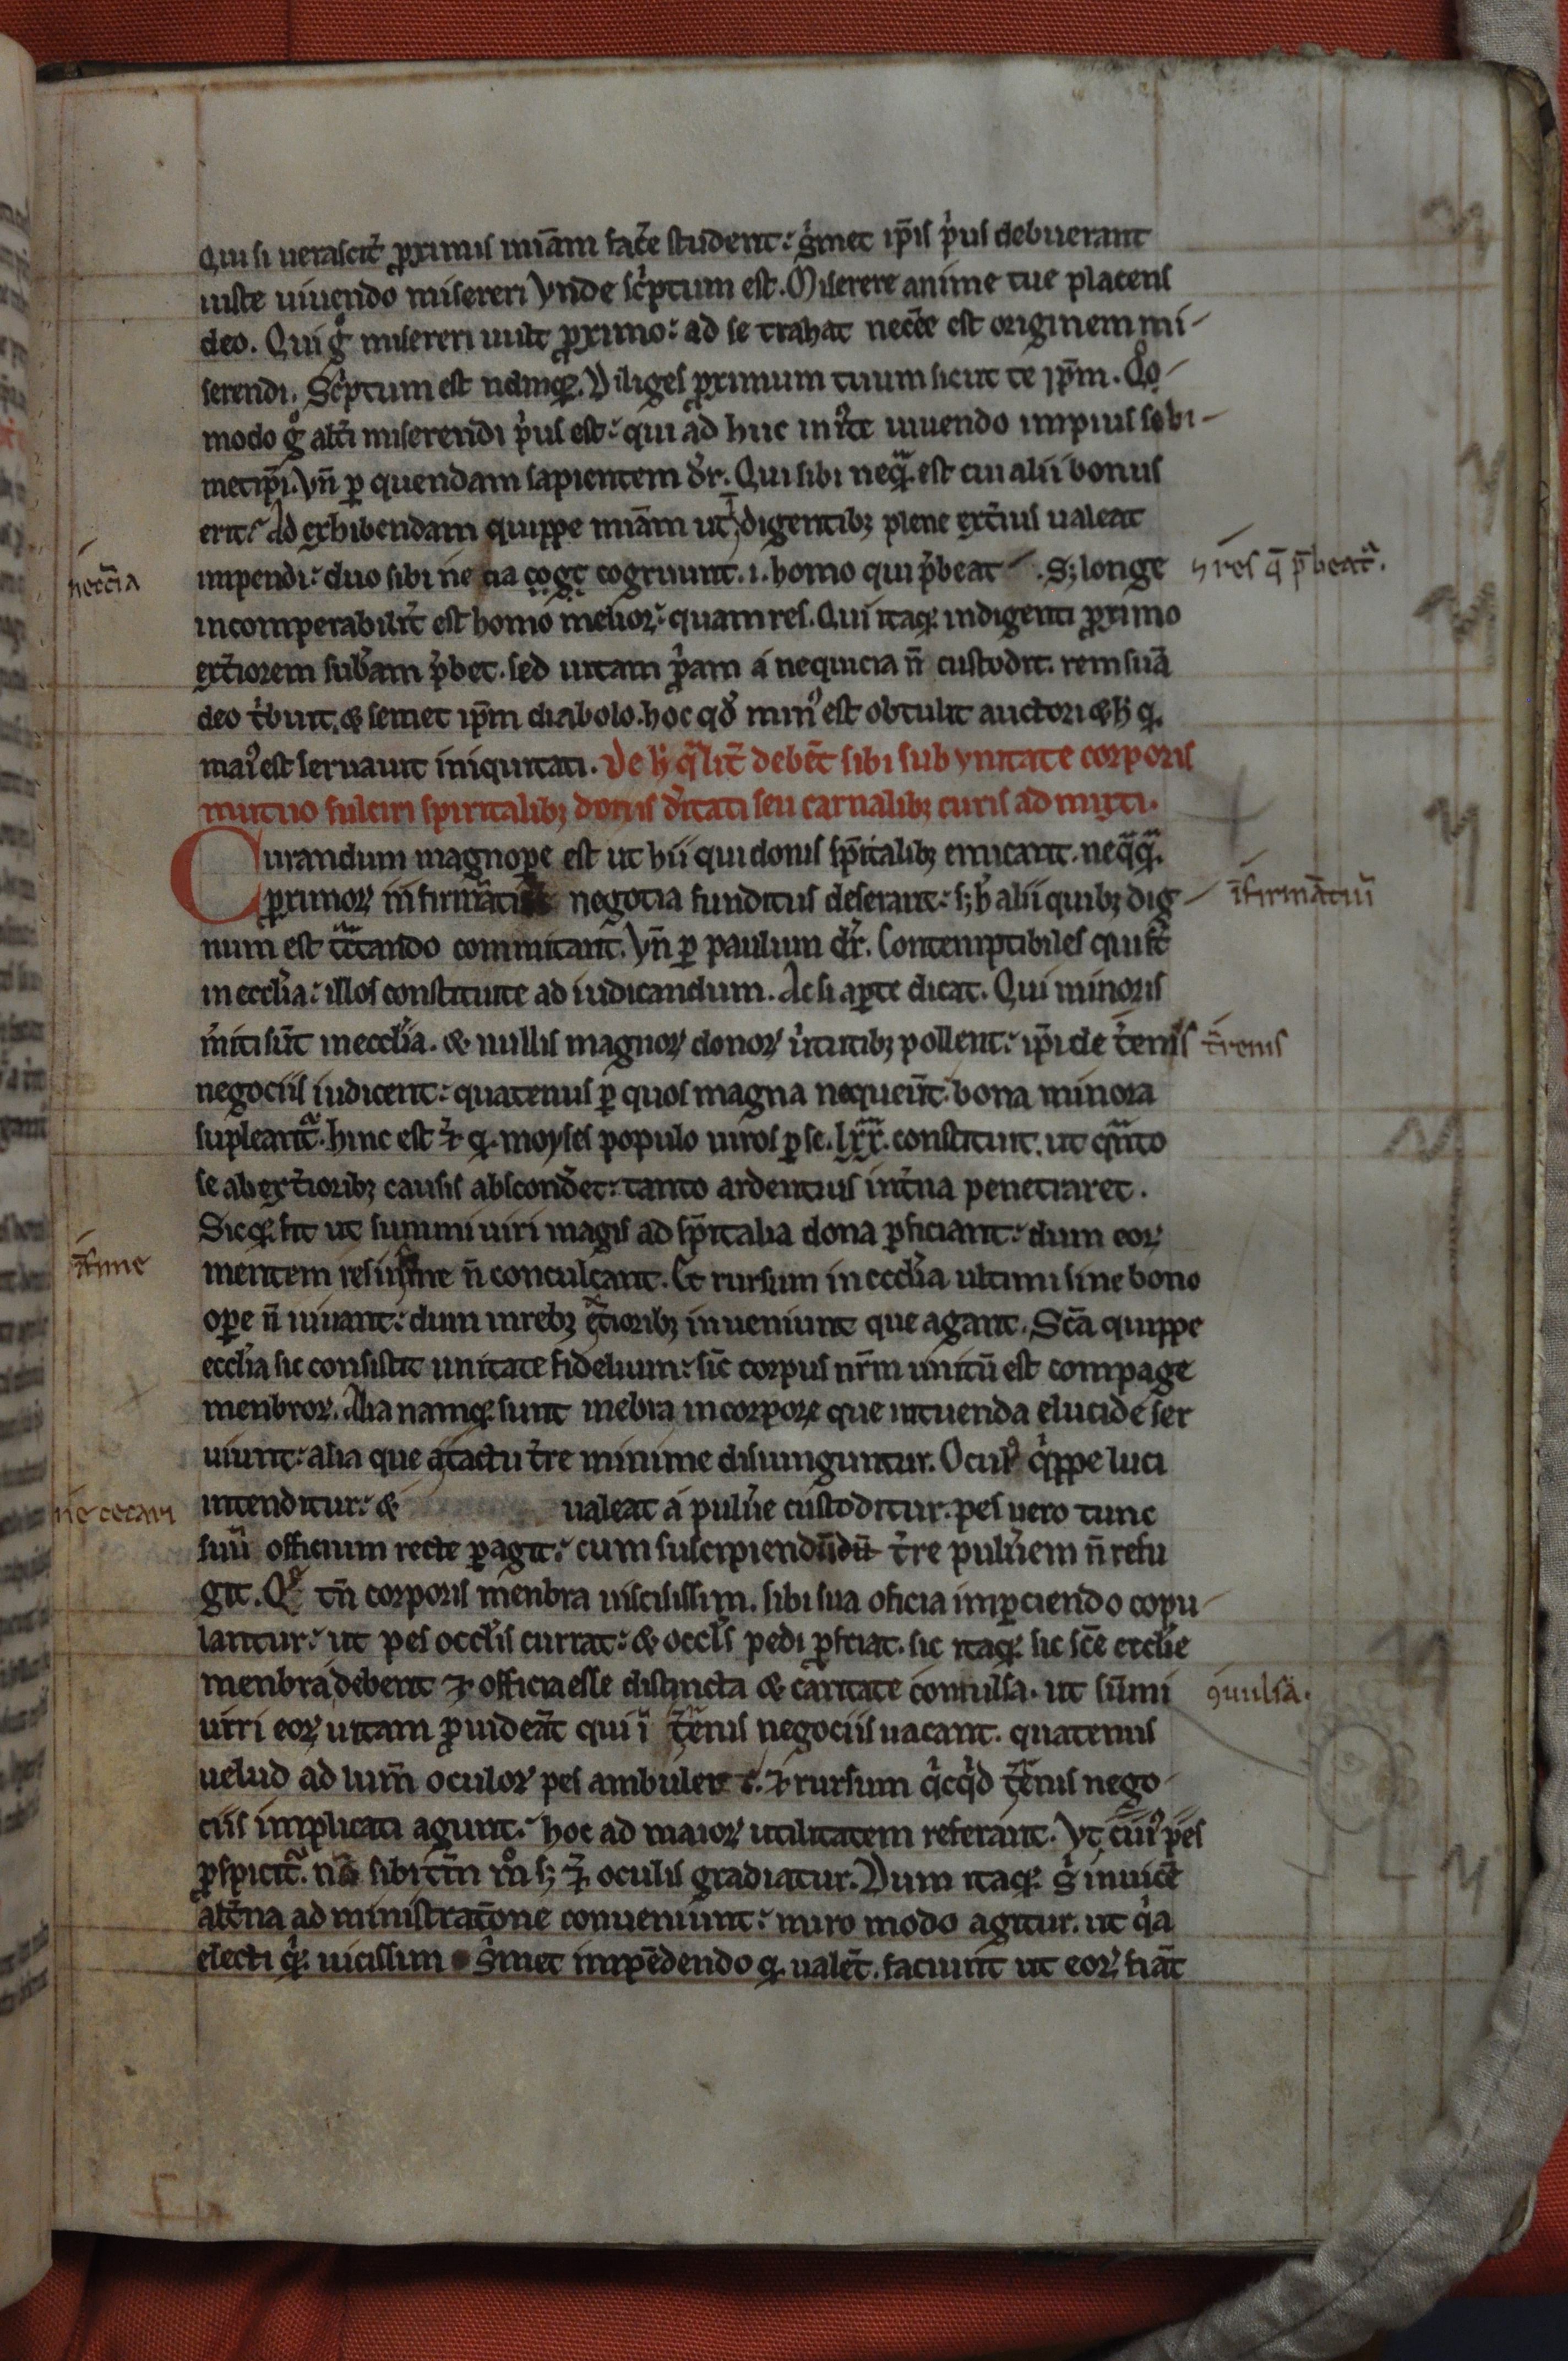 Qui si ueracit̉ ꝓximis mĩam fac̃e student: s̉met ip̃is p̉us debuerant
iuste uiuendo misereri Vnde sc̉ptum est. Miserere anime tue placens
deo. Qui gͦ misereri uult ꝓximo: ad se trahat neceẽ est originem mi-
serendi. Sc̉ptum est namq;. Diliges ꝓximum tuum sicut te ip̃m. Qͦo-
modo gͦ alt̉i miserendi p̉us est: qui ad huc iniͥte uiuendo impius sibi-
metip̃i. Vñ ꝑ quendam sapientem dr̃. Qui sibi neqͣ est cui alii bonus
erit: Ad exhibendam quippe mĩam ut ĩdigentibꝫ plene ext̉ius ualeat
necc̃ia
impendi: duo sibi ne cia cogt cogruunt. i. homo qui p̉beat . Sꝫ longe
⁊ res q̃ p̃beatͣ.
incomperabilit̃ est homo melior: quam res. Qui itaq; indigenti ꝓximo
ext̉iorem sub̃am p̉bet. sed uitam ꝓpam a nequicia ñ custodit. rem suã
deo t̉buit. & semet ip̃m diabolo. hoc qd̃ min᾿ est obtulit auctori & h̉ q.
mai᾿ est seruauit iniquitati. De h̉ qͣlit̃ debẽt sibi sub ynitate corporis
mutuo fulciri spiritalibꝫ donis d̉itati seu carnalibꝫ curis ad mixti.
Curandum magnoꝑe est ut hii qui donis sp̃italibꝫ emicant. neqͣqͣ.
ꝓximoꝝ infirmãti negotia funditus deserant: sꝫ h̉ alii quibꝫ dig-
ĩfirmãtiũ
num est tͣctando committant. Vñ ꝑ paulum dr̃. Contemptibiles qui st̃
in eccl̃ia: illos constituite ad iudicandum. Ac si aꝑte dicat. Qui minoris
m̉iti sũt in eccl̃ia. & nullis magnoꝝ donoꝝ u̇̉tutibꝫ pollent: ip̃i de t̉renis
t̃renis
negociis iudicent: quatenus ꝑ quos magna nequeũt. bona minora
supleantͣ. hinc est ⁊ q. moyses populo uiros ꝑ se. lxx. constituit. ut qͣnto
se ab ext̉ioribꝫ causis absconderet: tanto ardentius int̉na penetraret.
Sicq; fit ut summi uiri magis ad sp̃italia dona ꝓficiant: dum eoꝝ
ĩfime
mentem res infime ñ conculcant. Et rursum in eccl̃ia ultimi sine bono
oꝑe ñ uiuant: dum in rebꝫ ext̃ioribꝫ inueniunt que agant. Sc̃a quippe
eccl̃ia sic consistit unitate fidelium: sic̃ corpus nr̃m unitũ est compage
menbroꝝ. Alia namq; sunt mebra in corpore que intuenda eluci deser
uiunt: alia que a tactu t̉re minime disiunguntur. Ocul᾿ qͥppe luci
ne cecari
intenditur: & ualeat a pulu̇̉e custoditur. pes uero tunc
suũ officium recte ꝑagit: cum suscipiendũdũ t̉re pulu̇̉em ñ refu
git. Qͥ tñ corporis menbra uicisissim. sibi sua oficia imꝑciendo copu-
lantur: ut pes occl̃is currat: & occl̃s pedi ꝓspiciat. sic itaq; sic sc̃e eccl̃ie
menbra debent ⁊ officia esse distincta & caritate confulsa. ut sũmi
ꝯuulsã.
uiri eoꝝ uitam ꝓuideãt qui ĩ t̃renis negociis uacant. quatenus
uelud ad lum̃ oculoꝝ pes ambulet. ⁊ rursum qͥcqͥd t̃renis nego-
ciis implicati agunt: hoc ad maioꝝ utilitatem referant. Vt cui᾿ pes
ꝓspicitͣ. nõ sibi tm̃ mͦ sꝫ ⁊ oculis gradiatur. Dum itaq; s̉ inuicẽ
alt̃na administrat̃one conueniunt: miro modo agitur. ut qͥa
electi qͥ. uicissim s̉met impẽdendo q. ualẽt. faciunt ut eoꝝ fiãt